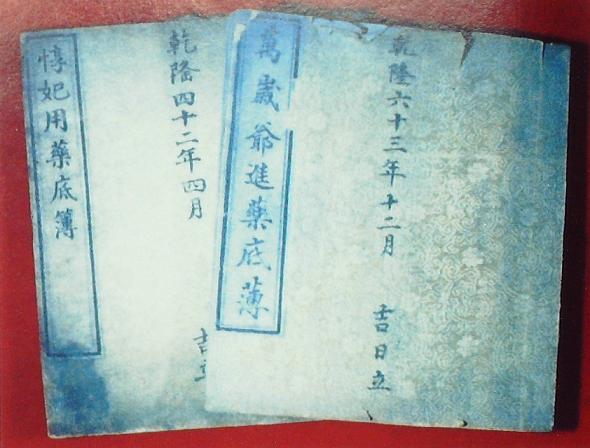 乾隆六十三年十二月 吉日立
萬歲爺進藥底薄
乾隆四十二年四月 吉立
惇妃用藥底簿